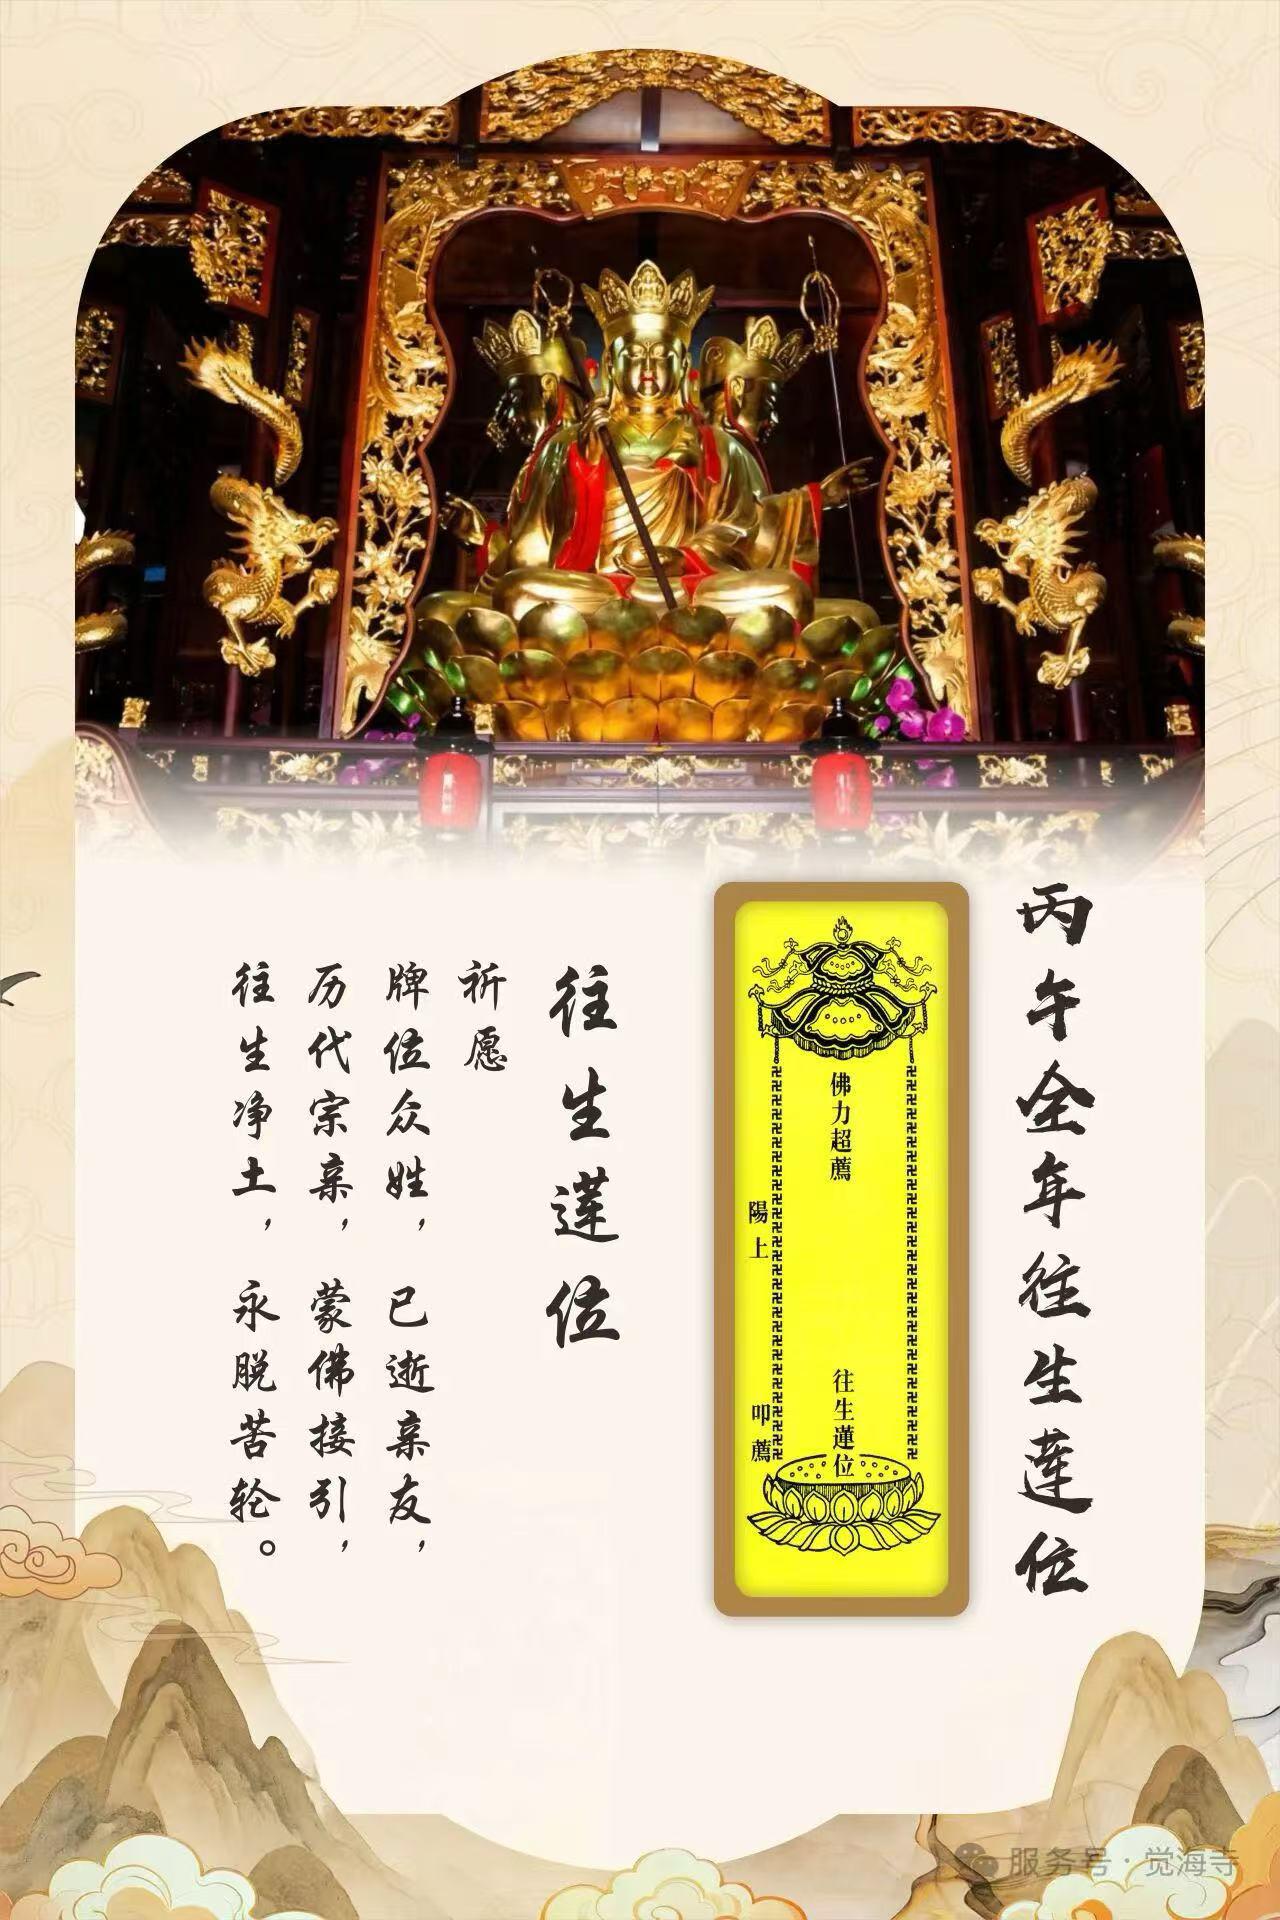 丙午全年往生莲位
佛力超薦
往生蓮位
陽上
叩薦
往生莲位
祈愿
牌位众姓，已逝亲友，
历代宗亲，蒙佛接引，
往生净土，永脱苦轮。
服务号·觉海寺